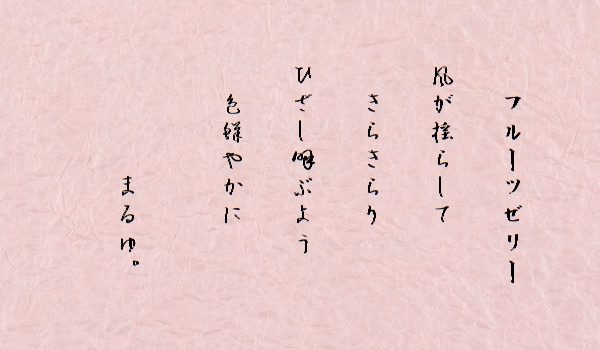 フルーツゼリー
風が揺らして
さらさらり
ひざし呼ぶよう
色鮮やかに
まるゆ。